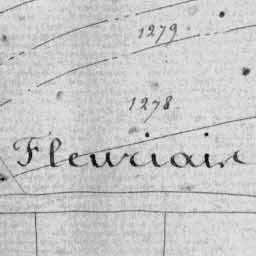 1279
1278
Fleuriair